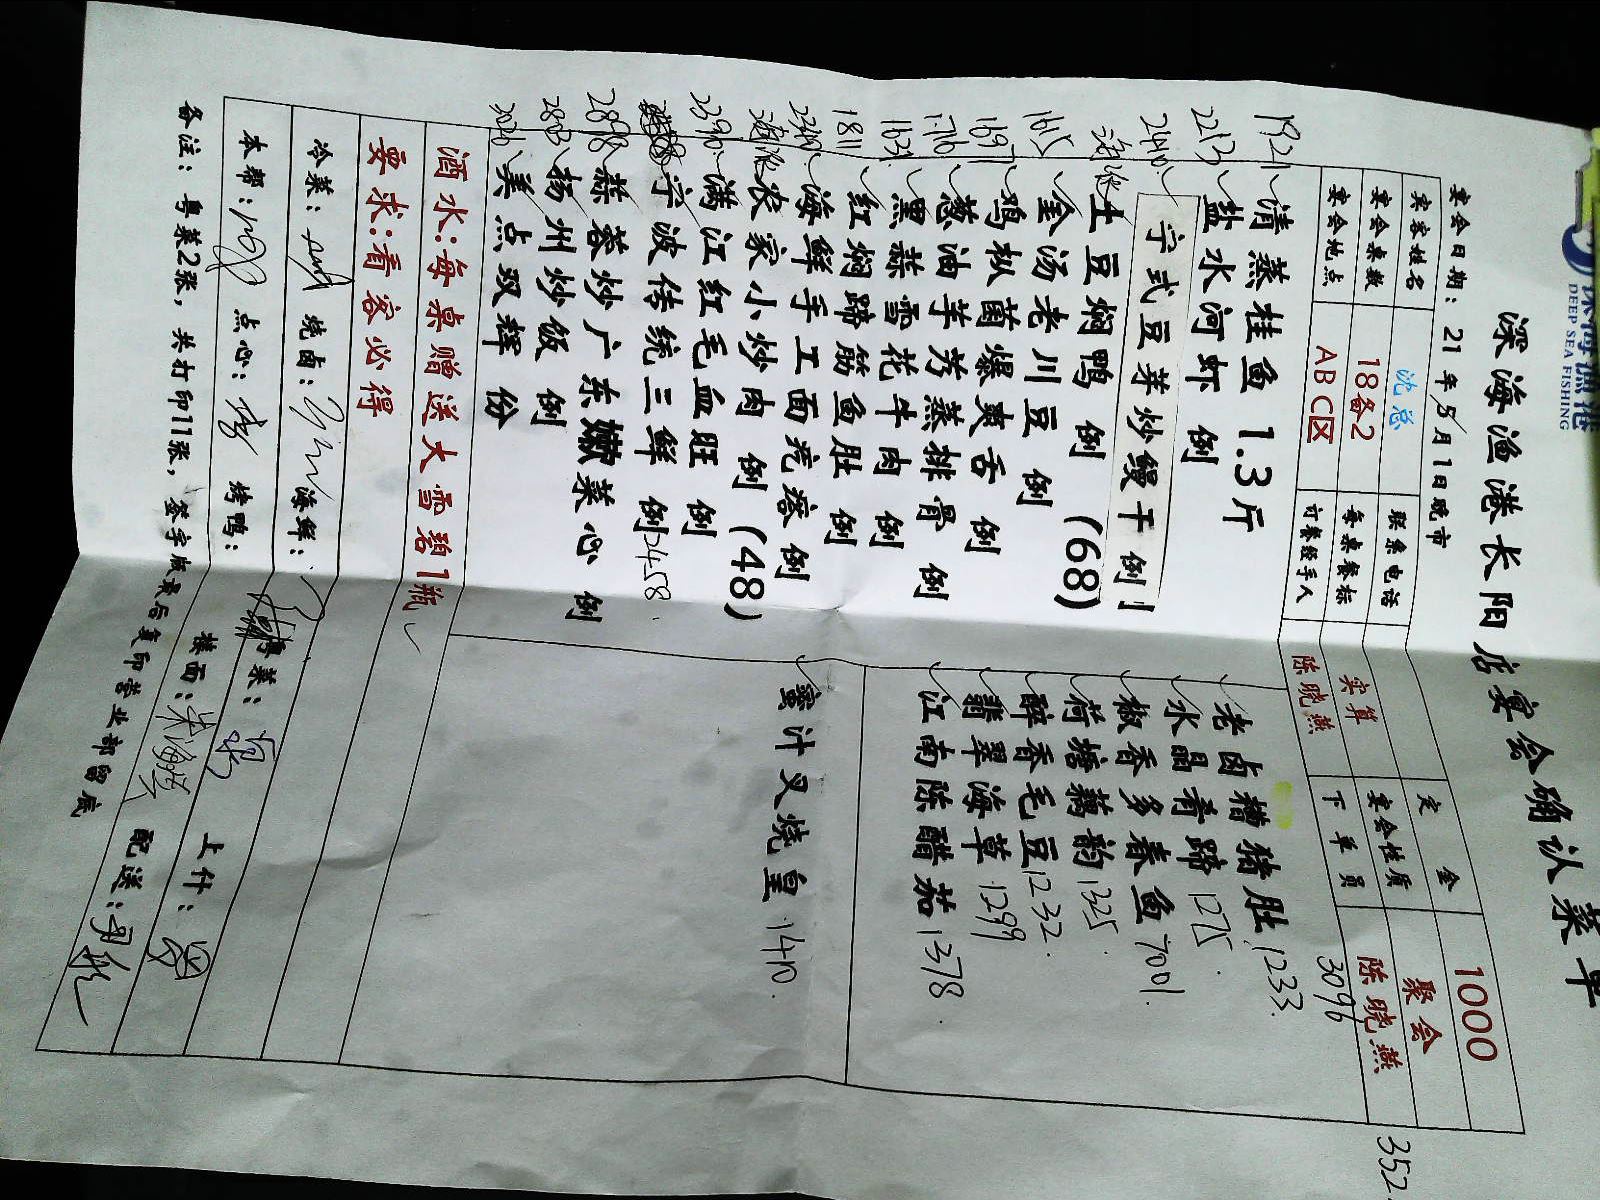 深海渔港
DEEP SEA FISHING
深海渔港长阳店宴会确认菜单
宴会日期：21年5月1日晚市
宾客姓名 沈总 联系电话 定金 1000
宴会桌数 18备2 每桌餐标 实算 宴会性质 聚会
宴会地点 ABC区 订餐经手人 陈晓燕 下单员 陈晓燕
3096
352
1921 清蒸桂鱼 1.3斤
2213 盐水河虾 例
2440 宁式豆芽炒鳗干 例
土豆焖鸭 例 (68)
1615 金汤老川豆 例
1697 鸡枞菌爆爽舌 例
1716 葱油芋艿蒸排骨 例
1631 黑蒜雪花牛肉 例
1811 红焖蹄筋鱼肚 例
2349 海鲜手工面疙瘩 例
农家小炒肉 例 (48)
2390 满江红毛血旺 例
宁波传统三鲜 例 2458
2898 蒜蓉炒广东嫩菜心 例
2803 扬州炒饭 例
3026 美点双辉 份
老卤糟猪肚 1233
水晶肴蹄 1275
椒香多春鱼 7001
荷塘藕韵 1325
醉香毛豆 1232
翡翠海草 1299
江南陈醋茄 1378
蜜汁叉烧皇 1410
酒水：每桌赠送大雪碧1瓶
要求：看容必得
冷菜： 烧卤： 海鲜： 粤菜： 上什：
本帮： 点心： 烤鸭： 接面： 配送：
备注：粤菜2张，共打印11张，签字版最后复印营业部留底